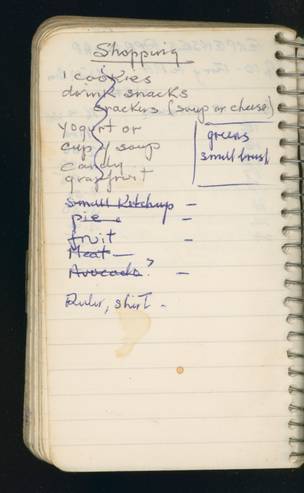 Shopping
1 cookies
drink snacks
crackers (soup or cheese)
Yogurt or
cup of soup
candy
grapefruit
greens
small brush
small Ketchup -
pie -
fruit -
Meat -
Avocado? -
Ruler, shirt -